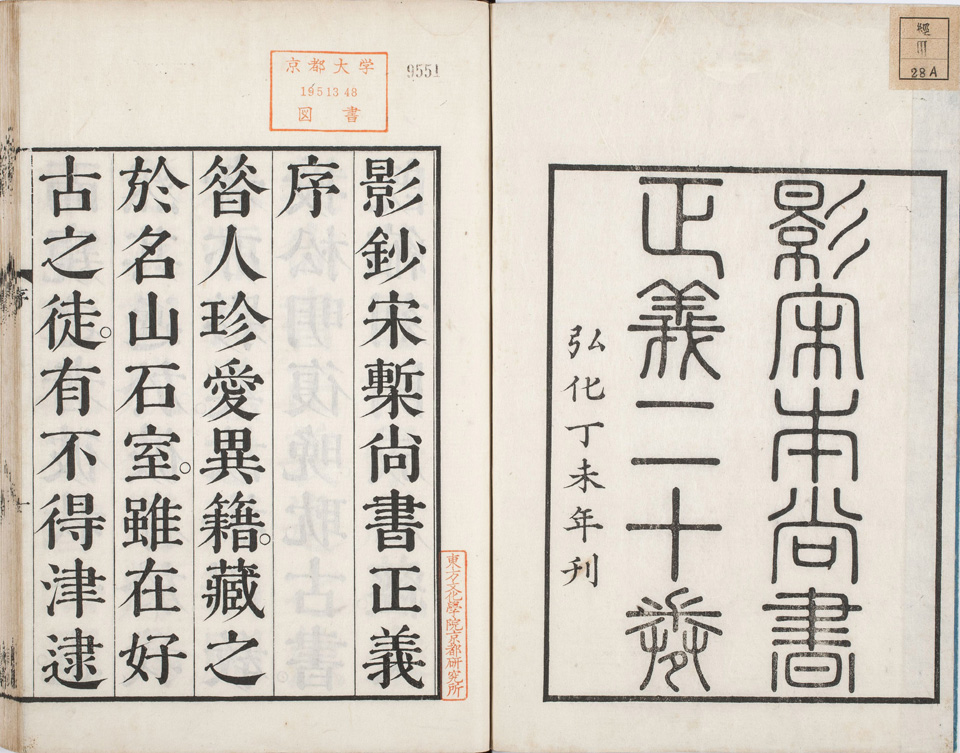 經
III
28A
影宋本尚書
正義二十卷
弘化丁未年刊
9551
京都大学
1951348
図書
東方文化學院京都研究所
影鈔宋槧尚書正義
序
㫺人珍愛異籍。藏之
於名山石室。雖在好
古之徒。有不得津逮
序
一